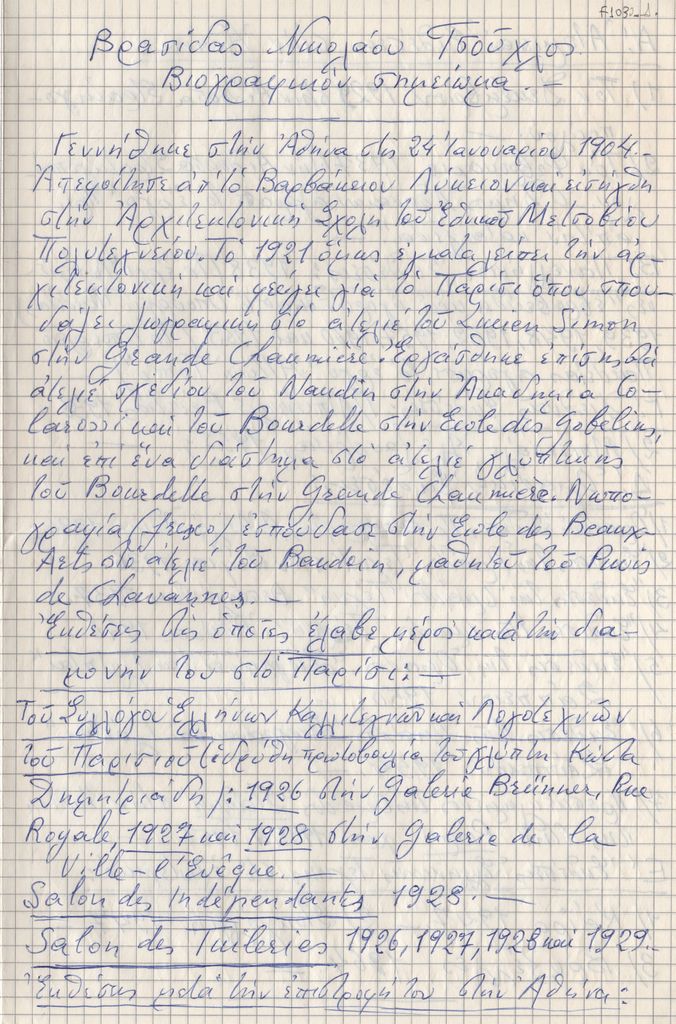 Βρασίδας Νικολάου Τσούχλος
Βιογραφικόν σημείωμα. —
Γεννήθηκε στὴν Ἀθήνα στὶς 24 Ἰανουαρίου 1904.—
Ἀπεφοίτησε ἀπ' τὸ Βαρβάκειον Λύκειον καὶ εἰσήχθη
στὴν Ἀρχιτεκτονικὴ Σχολὴ τοῦ Ἐθνικοῦ Μετσοβίου
Πολυτεχνείου. Τὸ 1921 ὅμως ἐγκαταλείπει τὴν ἀρ-
χιτεκτονικὴ καὶ φεύγει γιὰ τὸ Παρίσι ὅπου σπου-
δάζει ζωγραφικὴ στὸ ἀτελιέ τοῦ Lucien Simon
στὴν Grande Chaumière. Ἐργάσθηκε ἐπίσης στὰ
ἀτελιέ σχεδίου τοῦ Naudin στὴν Ἀκαδημία Co-
larossi καὶ τοῦ Bourdelle στὴν Ecole des Gobelins,
καὶ ἐπὶ ἕνα διάστημα στὸ ἀτελιέ γλυπτικῆς
τοῦ Bourdelle στὴν Grande Chaumière. Νωπο-
γραφία (fresco) ἐσπούδασε στὴν Ecole des Beaux-
Arts στὸ ἀτελιέ τοῦ Baudoin, μαθητοῦ τοῦ Puvis
de Chavannes. —
Ἐκθέσεις στὶς ὁποῖες ἔλαβε μέρος κατὰ τὴν δια-
μονήν του στὸ Παρίσι: —
Τοῦ Συλλόγου Ἑλλήνων Καλλιτεχνῶν καὶ Λογοτεχνῶν
τοῦ Παρισιοῦ (ἱδρύθη πρωτοβουλία τοῦ γλύπτη Κώστα
Δημητριάδη): 1926 στὴν Galerie Brünner, Rue
Royale, 1927 καὶ 1928 στὴν Galerie de la
Ville-l'Evêque. —
Salon des Indépendants 1928. —
Salon des Tuileries 1926, 1927, 1928 καὶ 1929.—
Ἐκθέσεις μετὰ τὴν ἐπιστροφή του στὴν Ἀθήνα: